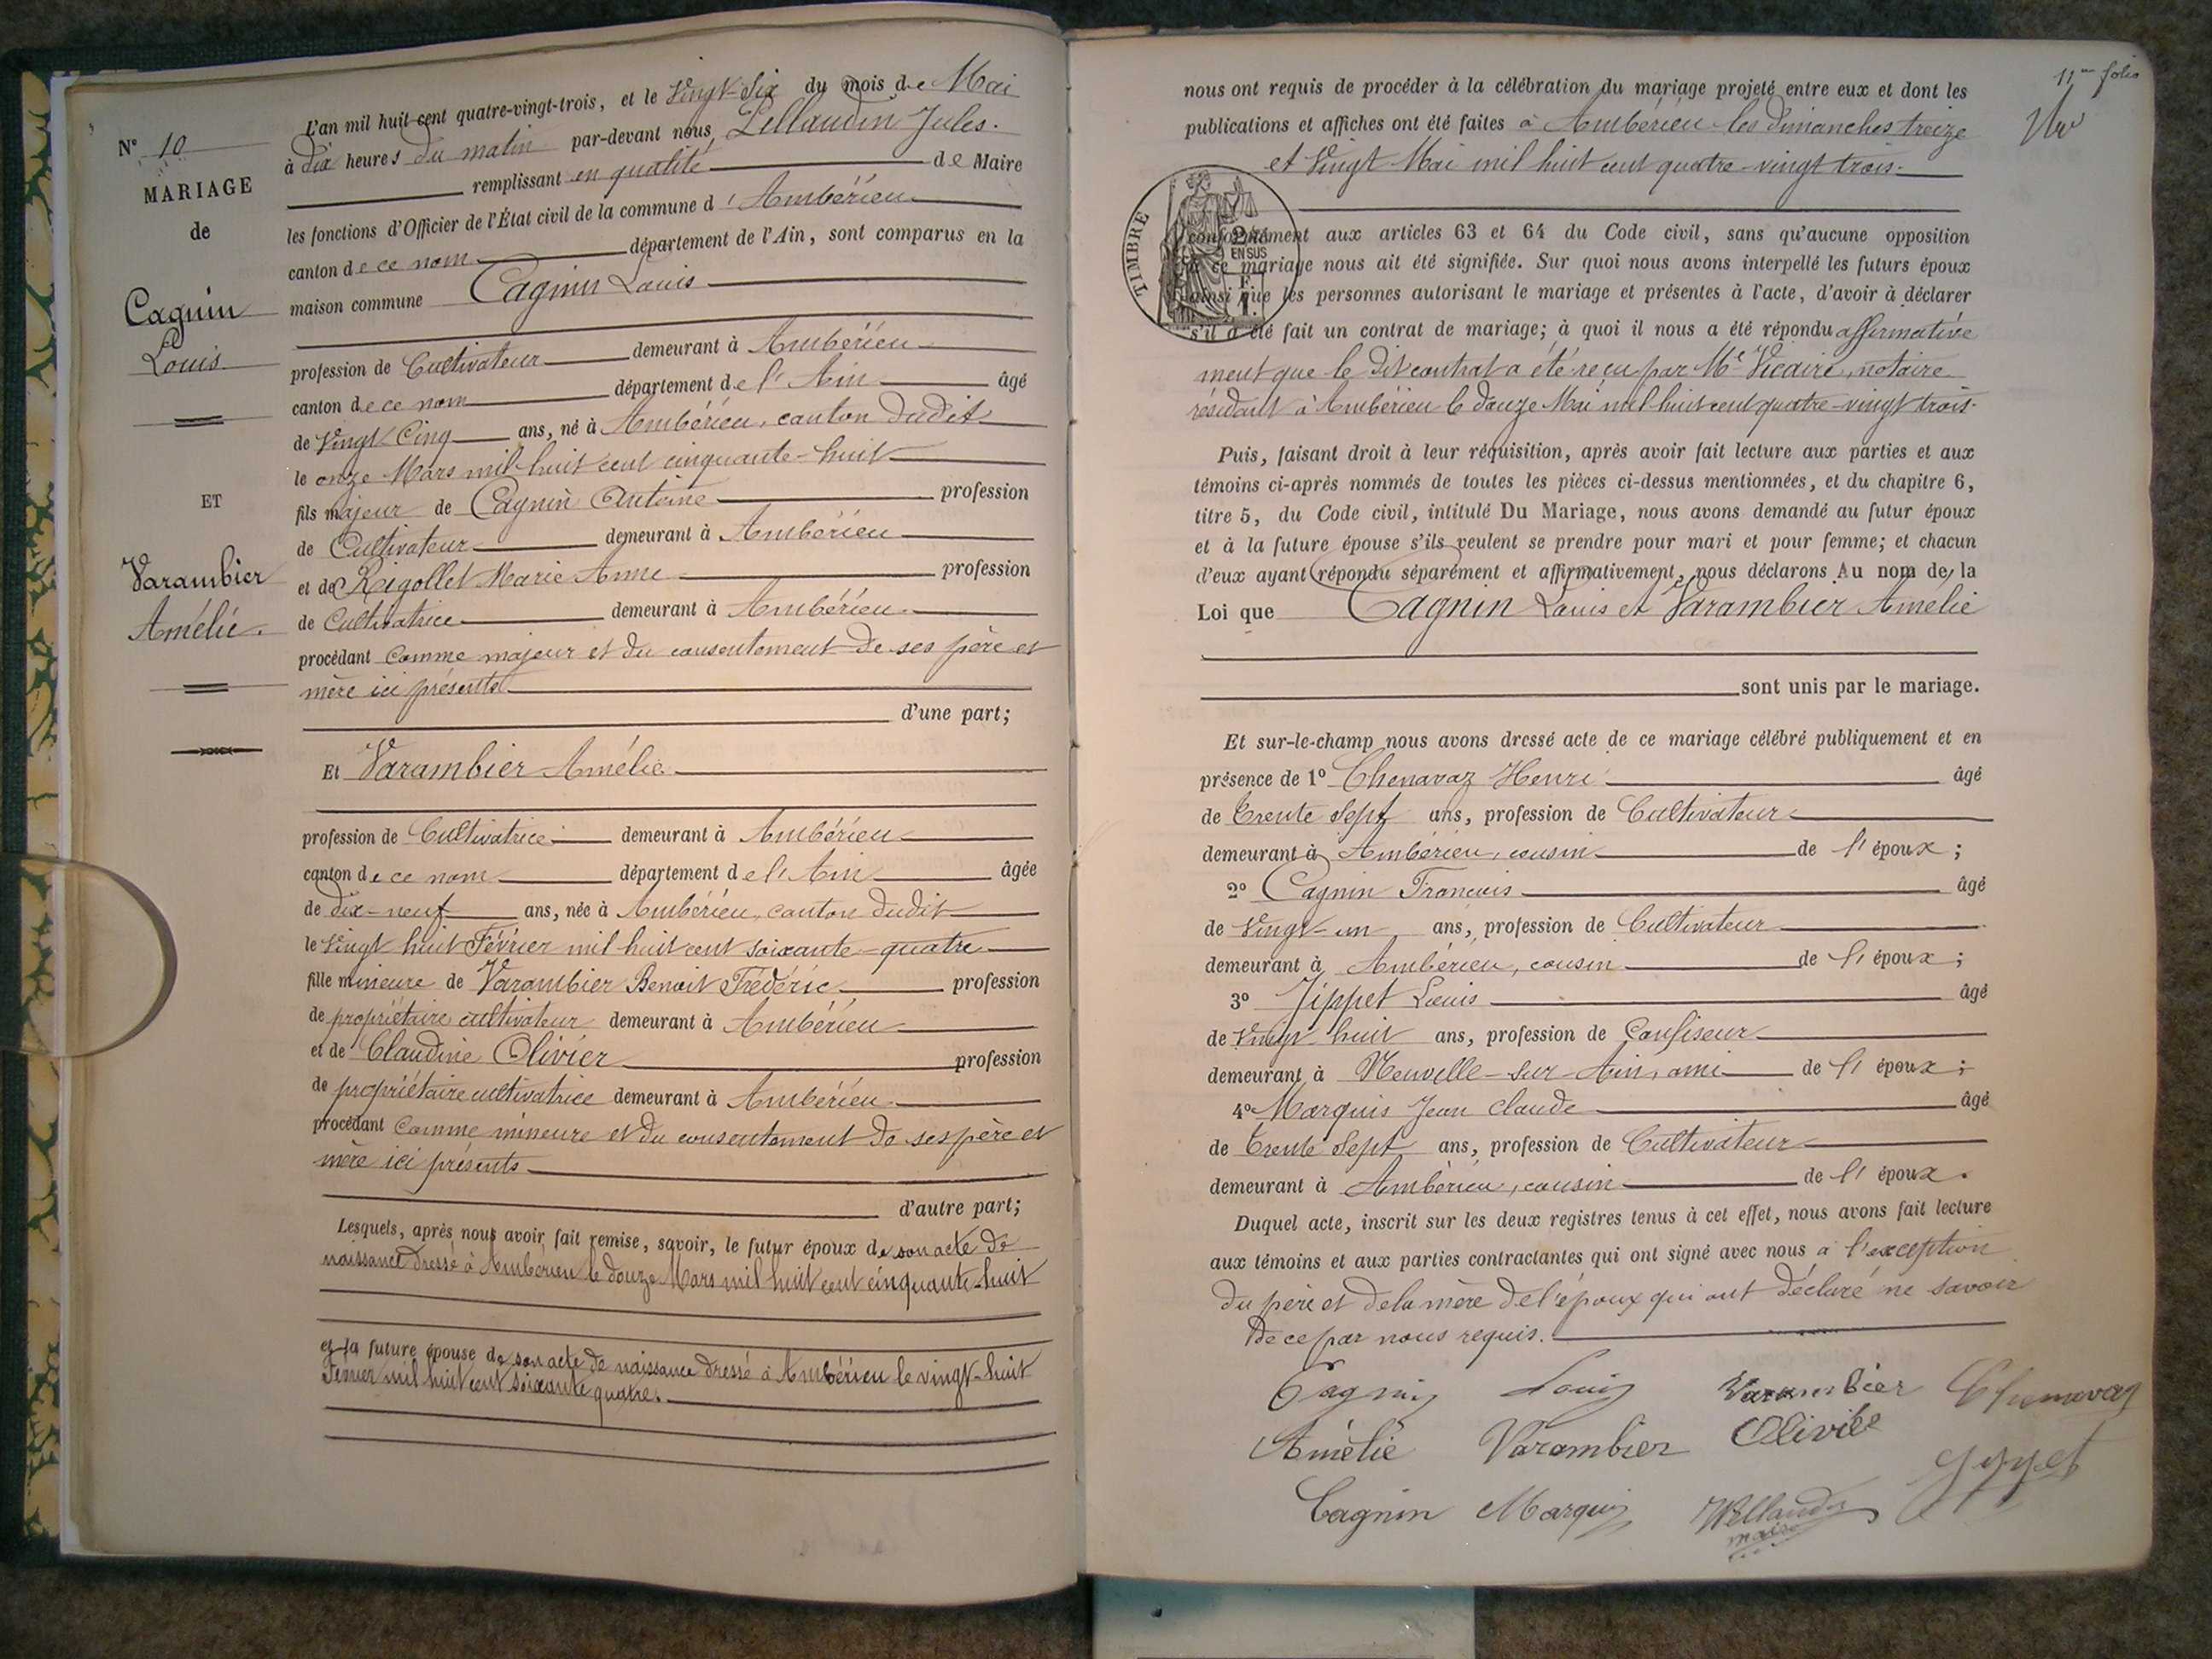 N° 10
MARIAGE
de
Cagnin
Louis
ET
Varambier
Amélie.
L'an mil huit cent quatre-vingt-trois, et le Vingt-Six du mois de Mai
à dix heures du matin par-devant nous Jules.
remplissant en qualité de Maire
les fonctions d'Officier de l'État civil de la commune d'Ambérieu
canton de ce nom département de l'Ain, sont comparus en la
maison commune Cagnin Louis
profession de Cultivateur demeurant à Ambérieu
canton de ce nom département de l'Ain âgé
de Vingt Cinq ans, né à Ambérieu, canton dudit
le onze Mars mil huit cent cinquante-huit
fils majeur de Cagnin Antoine profession
de Cultivateur demeurant à Ambérieu
et de Rigollet Marie Anne profession
de Cultivatrice demeurant à Ambérieu.
procédant comme majeur et du consentement de ses père et
mère ici présents
d'une part;
Et Varambier Amélie
profession de Cultivatrice demeurant à Ambérieu
canton de ce nom département de l'Ain âgée
de dix-neuf ans, née à Ambérieu, canton dudit
le vingt huit Février mil huit cent soixante-quatre
fille mineure de Varambier Benoit Frédéric profession
de propriétaire cultivateur demeurant à Ambérieu
et de Claudine Olivier profession
de propriétaire cultivatrice demeurant à Ambérieu.
procédant comme mineure et du consentement de ses père et
mère ici présents
d'autre part;
Lesquels, après nous avoir fait remise, savoir, le futur époux de son acte de
naissance dressé à Ambérieu le douze Mars mil huit cent cinquante-huit
et la future épouse de son acte de naissance dressé à Ambérieu le vingt-huit
Février mil huit cent soixante quatre.
11me folio
nous ont requis de procéder à la célébration du mariage projeté entre eux et dont les
publications et affiches ont été faites à Ambérieu les dimanches treize
et Vingt Mai mil huit cent quatre-vingt trois.
TIMBRE
EN SUS
conformément aux articles 63 et 64 du Code civil, sans qu'aucune opposition
à ce mariage nous ait été signifiée. Sur quoi nous avons interpellé les futurs époux
ainsi que les personnes autorisant le mariage et présentes à l'acte, d'avoir à déclarer
s'il a été fait un contrat de mariage; à quoi il nous a été répondu affirmative
ment que le dit contrat a été reçu par Me Vicaire, notaire
résidant à Ambérieu le douze Mai mil huit cent quatre-vingt trois.
Puis, faisant droit à leur réquisition, après avoir fait lecture aux parties et aux
témoins ci-après nommés de toutes les pièces ci-dessus mentionnées, et du chapitre 6,
titre 5, du Code civil, intitulé Du Mariage, nous avons demandé au futur époux
et à la future épouse s'ils veulent se prendre pour mari et pour femme; et chacun
d'eux ayant répondu séparément et affirmativement, nous déclarons Au nom de la
Loi que Cagnin Louis et Varambier Amélie
sont unis par le mariage.
Et sur-le-champ nous avons dressé acte de ce mariage célébré publiquement et en
présence de 1° Chenavaz Henri âgé
de trente Sept ans, profession de Cultivateur
demeurant à Ambérieu, cousin de l'époux;
2° Cagnin Francois âgé
de Vingt-un ans, profession de Cultivateur
demeurant à Ambérieu, cousin de l'époux;
3° Louis âgé
de Vingt huit ans, profession de Confiseur
demeurant à Neuville-sur-Ain, ami de l'époux;
4° Marquis Jean Claude âgé
de trente Sept ans, profession de Cultivateur
demeurant à Ambérieu, cousin de l'époux.
Duquel acte, inscrit sur les deux registres tenus à cet effet, nous avons fait lecture
aux témoins et aux parties contractantes qui ont signé avec nous à l'exception
du père et de la mère de l'époux qui ont déclaré ne savoir
de ce par nous requis.
Cagnin Louis Varambier Chenavaz
Amélie Varambier Olivier
Cagnin Marquis
maire